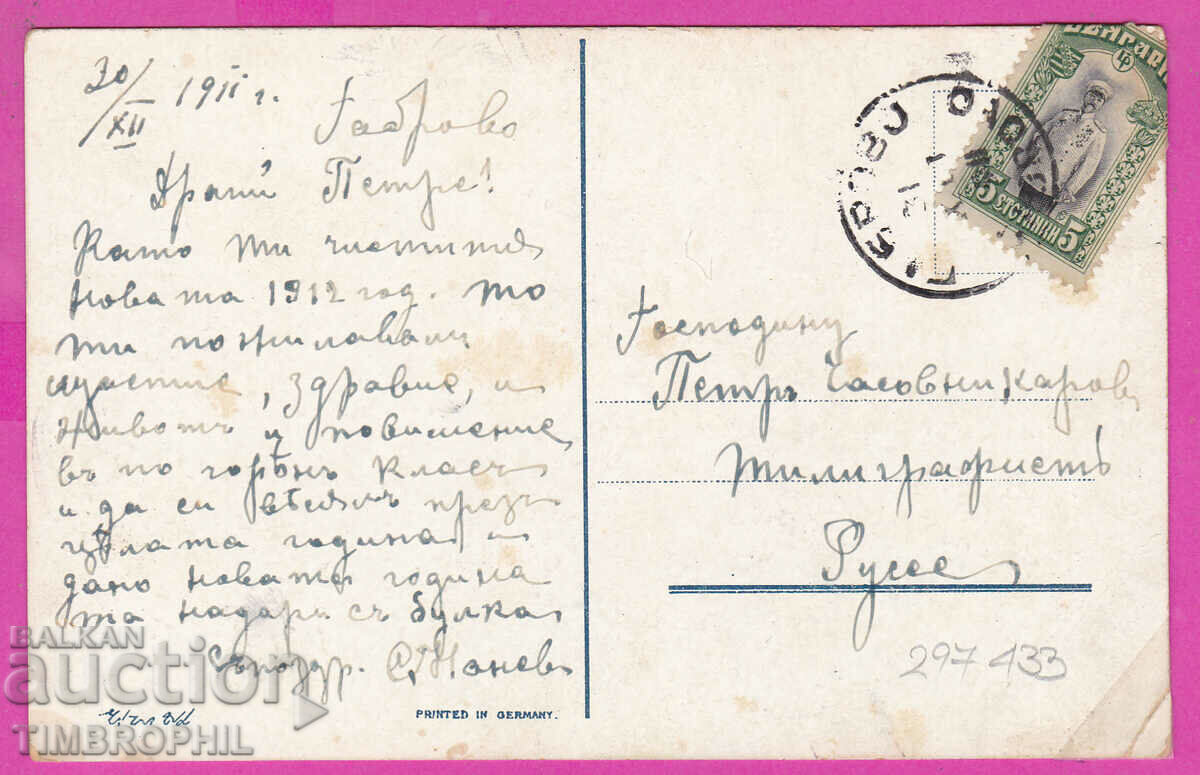 30/XII 1911 г.
Габрово
Драгий Петре!
Като ти чиститя
новата 1912 год. то
ти пожилавамъ
щастие, здравие, и
животъ и повишение
въ по горѣнъ класъ
и да си вѣсѣлъ презъ
цѣлата година и
дано новата година
та надари съ булка
Съпоздр. С. Наневъ
PRINTED IN GERMANY.
БЪЛГАРИЯ
5 СТОТИНКИ 5
ГАБРОВО
Господину
Петръ Часовникаровъ
тилиграфистъ
Русе
297433
BALKAN
auction
TIMBROPHIL